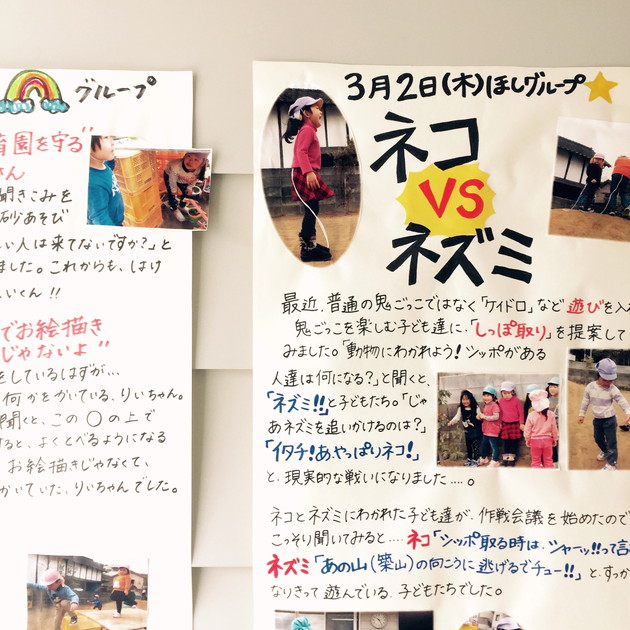 グループ
育園を守る"
さん
聞きこみを
砂あそび
しい人は来てないですか?」と
ました。これからも、しけ
いくん!!
でお絵描き
じゃないよ"
をしているはずが...
何かをかいている、りいちゃん。
聞くと、この〇の上で
すると、よくとべるようになる
お絵描きじゃなくて、
かいていた、りいちゃんでした。
3月2日(木)ほしグループ
ネコ
VS
ネズミ
最近、普通の鬼ごっこではなく「ケイドロ」など遊びを入
鬼ごっこを楽しむ子ども達に、「しっぽ取り」を提案して
みました。「動物にわかれよう!シッポがある
人達は何になる?」と聞くと、
「ネズミ!!」と子どもたち。「じゃ
あネズミを追いかけるのは?」
「イタチ!あ、やっぱりネコ!」
と、現実的な戦いになりました....。
ネコとネズミにわかれた子ども達が、作戦会議を始めたので
こっそり聞いてみると....ネコ「シッポ取る時は、シャーッ!!って言
ネズミ「あの山(築山)の向こうに逃げるでチュー!!」と、すっか
なりきって遊んでいる、子どもたちでした。